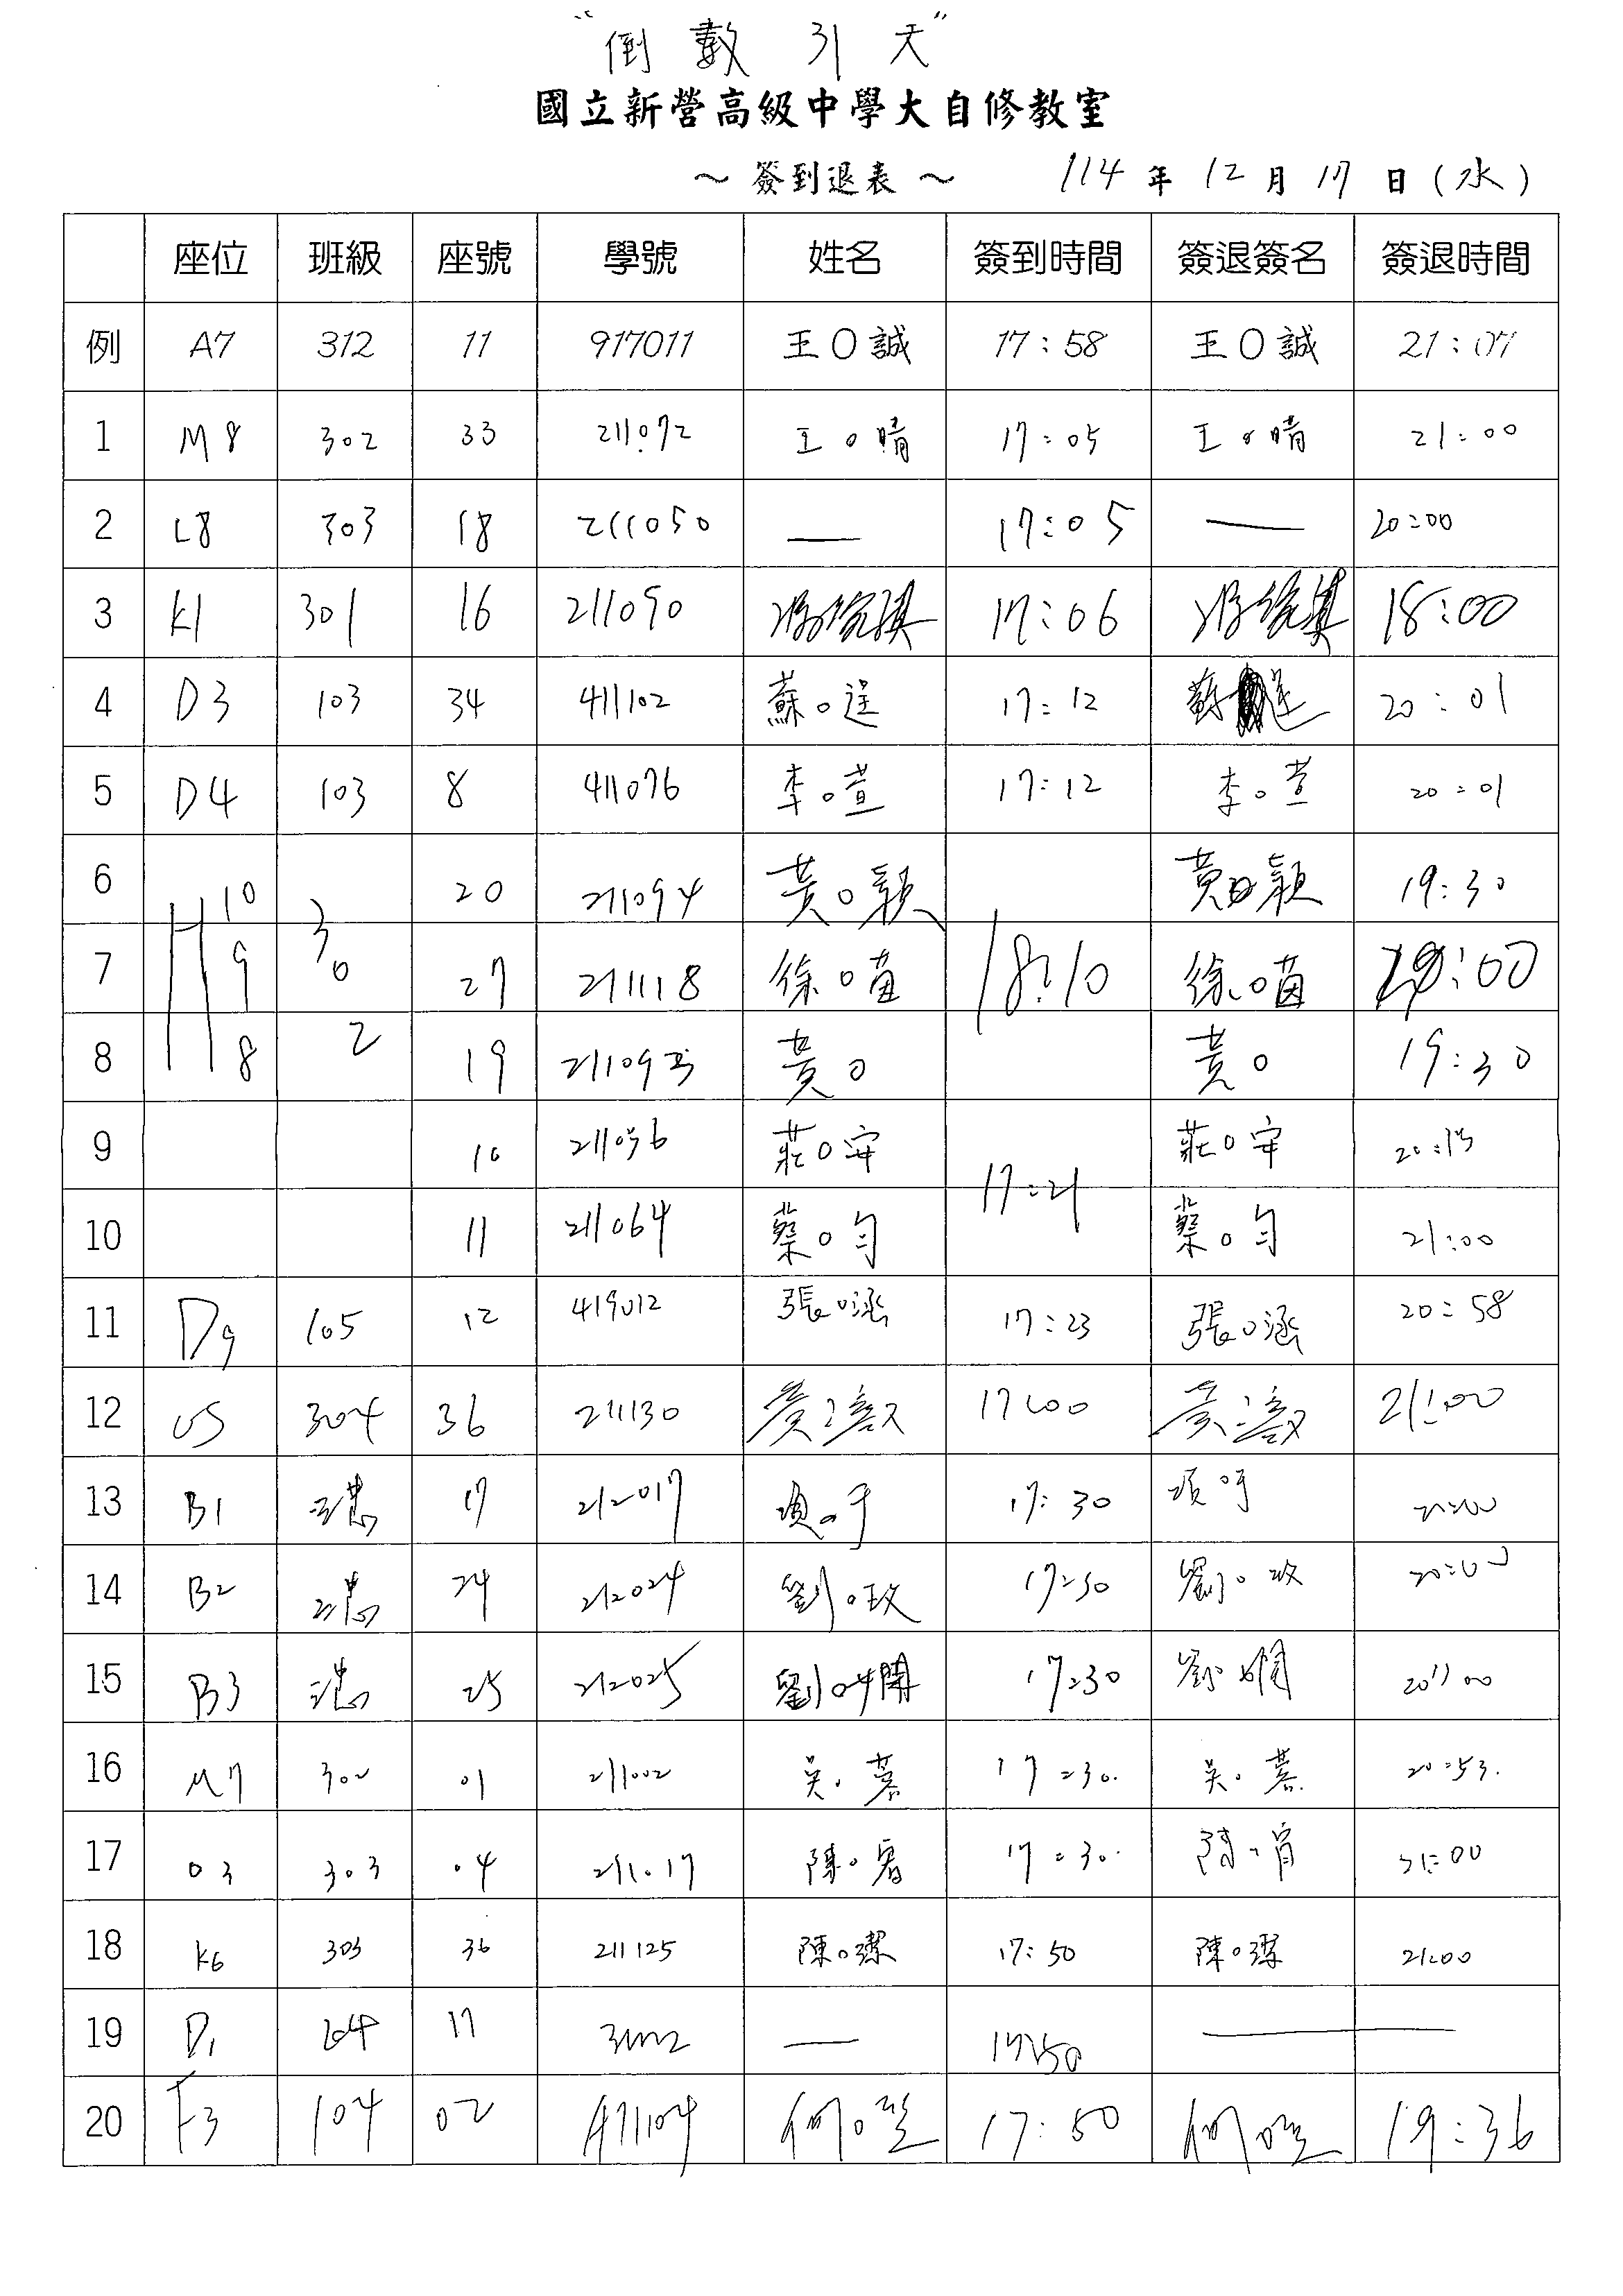 "倒數31天"
國立新營高級中學大自修教室
～簽到退表～ 114年12月17日(水)
座位 班級 座號 學號 姓名 簽到時間 簽退簽名 簽退時間
例 A7 312 11 917011 王○誠 17:58 王○誠 21:07
1 M8 302 33 211072 王○晴 17:05 王○晴 21:00
2 L8 303 18 211050 — 17:05 — 20:00
3 K1 301 16 211090 17:06 18:00
4 D3 103 34 411102 蘇○逞 17:12 蘇 逞 20:01
5 D4 103 8 411076 李○萱 17:12 李○萱 20:01
6 H10 20 211094 黃○穎 黃○穎 19:30
7 9 302 27 211118 徐○喵 18:10 徐○喵 :00
8 8 19 21109 黃○ 黃○ 19:30
9 10 2110 6 莊○安 莊○安
10 11 211064 蔡○勻 17:21 蔡○勻 21:00
11 D9 105 12 419012 張○涵 17:23 張○涵 20:58
12 304 36 211130 17:00 21:00
13 B1 17 212017 項○于 17:30 項○于
14 B2 24 212024 劉○玟 17:30 劉○玟 20:00
15 B3 25 212025 劉○嫻 17:30 劉○嫻 20:00
16 M7 302 01 211002 吳○蓁 17:30 吳○蓁 20:53
17 O3 303 04 211017 陳○ 17:30 陳○ 21:00
18 K6 303 36 211125 陳○潔 17:50 陳○潔 21:00
19 D1 204 17 — 17:50 —
20 F3 104 02 411104 何○ 17:50 何○ 19:36